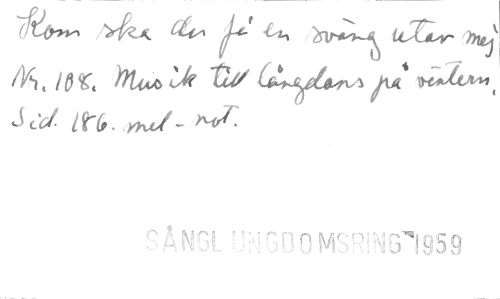 Kom ska du få en sväng utav mej
Nr. 108. Musik till långdans på vintern.
Sid. 186. mel-not.
SÅNGL UNGDOMSRING 1959